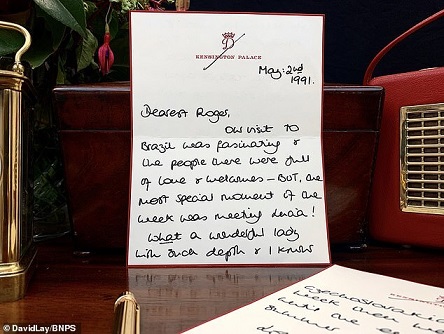 D
KENSINGTON PALACE
May: 2nd
1991.
Dearest Roger,
Our visit to
Brazil was fascinating &
the people there were full
of love & welcomes - BUT, the
most special moment of the
week was meeting Lucia!
What a wonderful lady
with such depth & I know
Czechoslovakia
week when
© DavidLay/BNPS